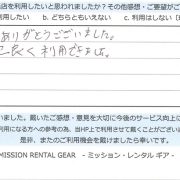 店を利用したいと思われましたか?その他感想・ご要望がご
利用したい b. どちらともいえない c. 利用はしない (
ありがとうございました。
良く利用できました。
いました。戴いたご感想・意見を大切に今後のサービス向上に
利用になる方への参考の為、当HP上で利用させて戴くことがござい
是非、またのご利用機会を戴けましたら幸いです。
MISSION RENTAL GEAR - ミッション・レンタル ギア -